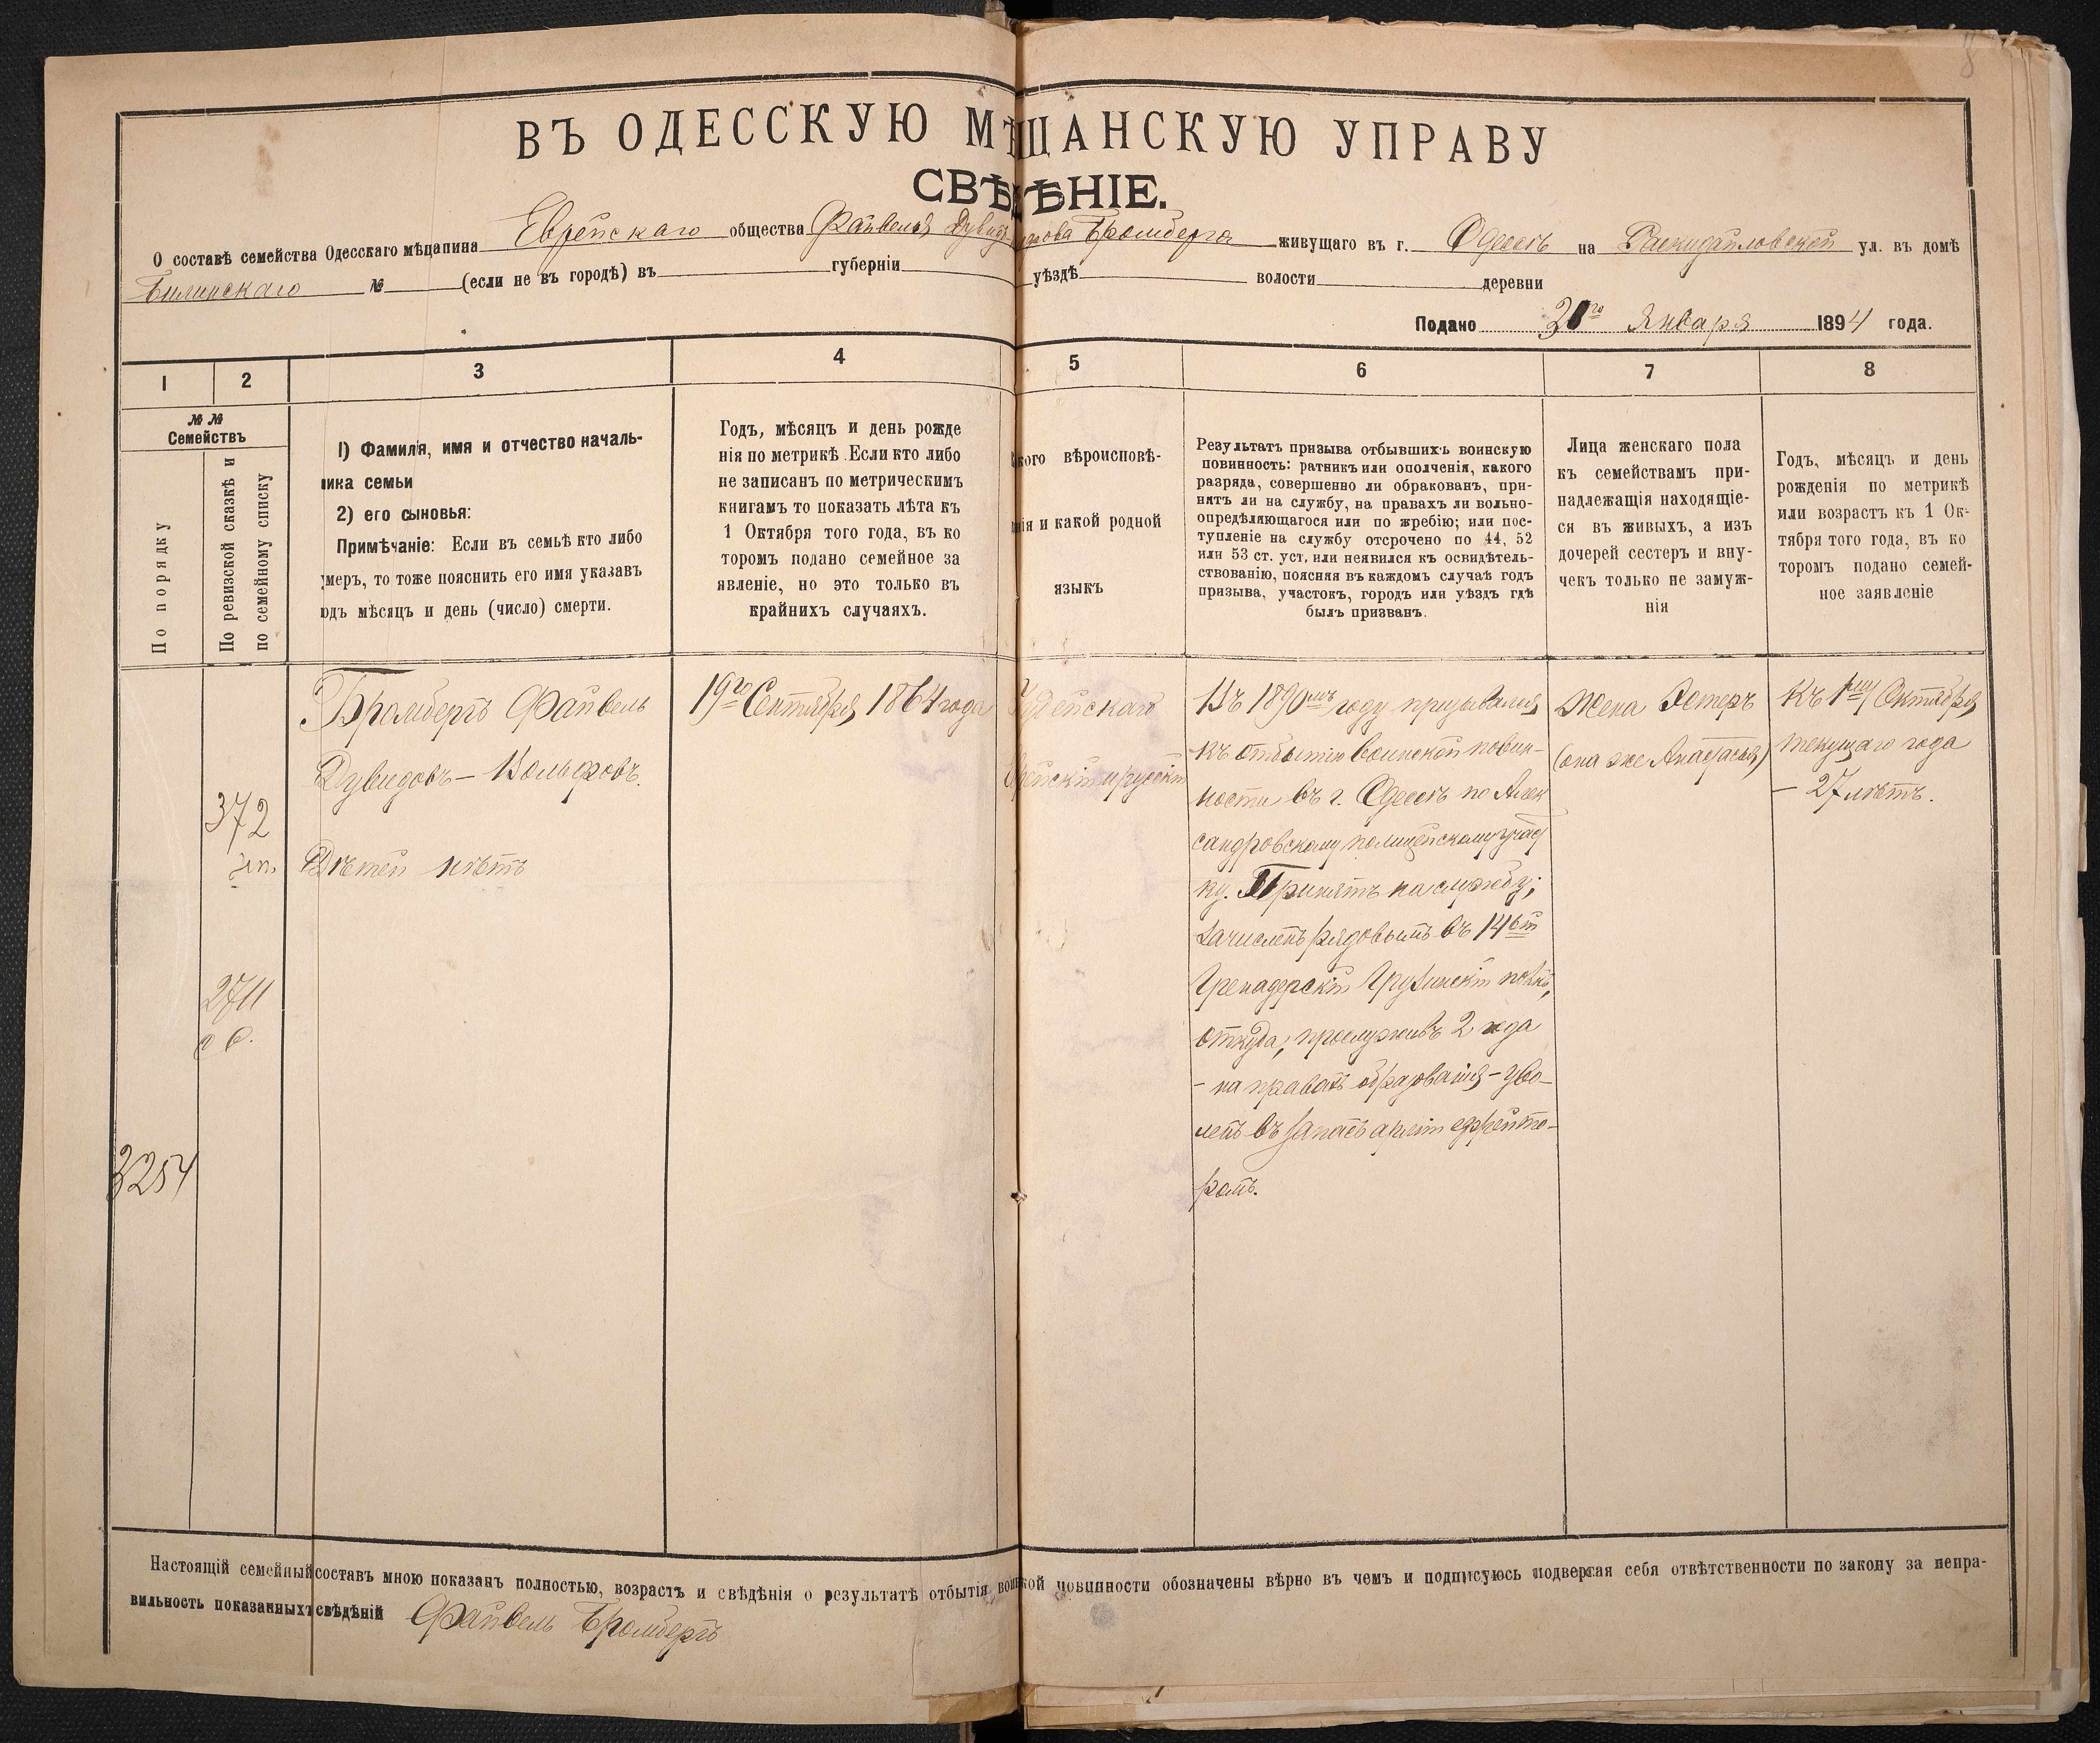 8
ВЪ ОДЕССКУЮ МѢЩАНСКУЮ УПРАВУ
СВѢДѢНІЕ.
О составѣ семейства Одесскаго мѣщанина Еврейскаго общества Файвеля Дувидъ Бромберга живущаго въ г. Одессѣ на Раскидайловской ул. въ домѣ
Билинскаго № (если не въ городѣ) въ губерніи уѣздѣ волости деревни
Подано Января 1894 года.
1 2 3 4 5 6 7 8
№ №
Семействъ
По порядку
По ревизской сказкѣ и
по семейному списку
1) Фамиля, имя и отчество началь-
ника семьи
2) его сыновья:
Примѣчаніе: Если въ семьѣ кто либо
умеръ, то тоже пояснить его имя указавъ
годъ мѣсяцъ и день (число) смерти.
Годъ, мѣсяцъ и день рожде
нія по метрикѣ. Если кто либо
не записанъ по метрическимъ
книгамъ то показать лѣта къ
1 Октября того года, въ ко
торомъ подано семейное за
явленіе, но это только въ
крайнихъ случаяхъ.
вѣроисповѣ-
и какой родной
языкъ
Результатъ призыва отбывшихъ воинскую
повинность: ратникъ или ополченія, какого
разряда, совершенно ли обракованъ, при-
нятъ ли на службу, на правахъ ли вольно-
опредѣляющагося или по жребію; или пос-
тупленіе на службу отсрочено по 44, 52
или 53 ст. уст, или неявился къ освидѣтель-
ствованію, поясняя въ каждомъ случаѣ годъ
призыва, участокъ, городъ или уѣздъ гдѣ
былъ призванъ.
Лица женскаго пола
къ семействамъ при-
надлежащія находящіе-
ся въ живыхъ, а изъ
дочерей сестеръ и вну-
чекъ только не замуж-
нія
Годъ, мѣсяцъ и день
рожденія по метрикѣ
или возрастъ къ 1 Ок-
тября того года, въ ко
торомъ подано семей-
ное заявленіе
Бромбергъ Файвель
Дувидовъ – Вольфовъ.
Дѣтей нѣтъ
372
2711
3254
19го Сентября 1864 года
Іудейская
Еврейскій и русскій
Въ 1890мъ году призывался
къ отбытію воинской повин-
ности въ г. Одессѣ по Алек
сандровскому полицейскому участ
ку. Принятъ на службу;
зачисленъ рядовымъ въ 14й
Гренадерскій Грузинскій полкъ,
откуда, прослуживъ 2 года
– на правахъ образованія – уво-
ленъ въ запасъ арміи ефрейто-
ромъ.
Жена Эстеръ
(она же Анастасья)
Къ 1му Октября
текущаго года
– 27 лѣтъ.
Настоящій семейный составъ мною показанъ полностью, возрастъ и свѣдѣнія о результатѣ отбытія воинской повинности обозначены вѣрно въ чемъ и подписуюсь подвергая себя отвѣтственности по закону за непра-
вильность показанныхъ свѣдѣній Файвель Бромбергъ